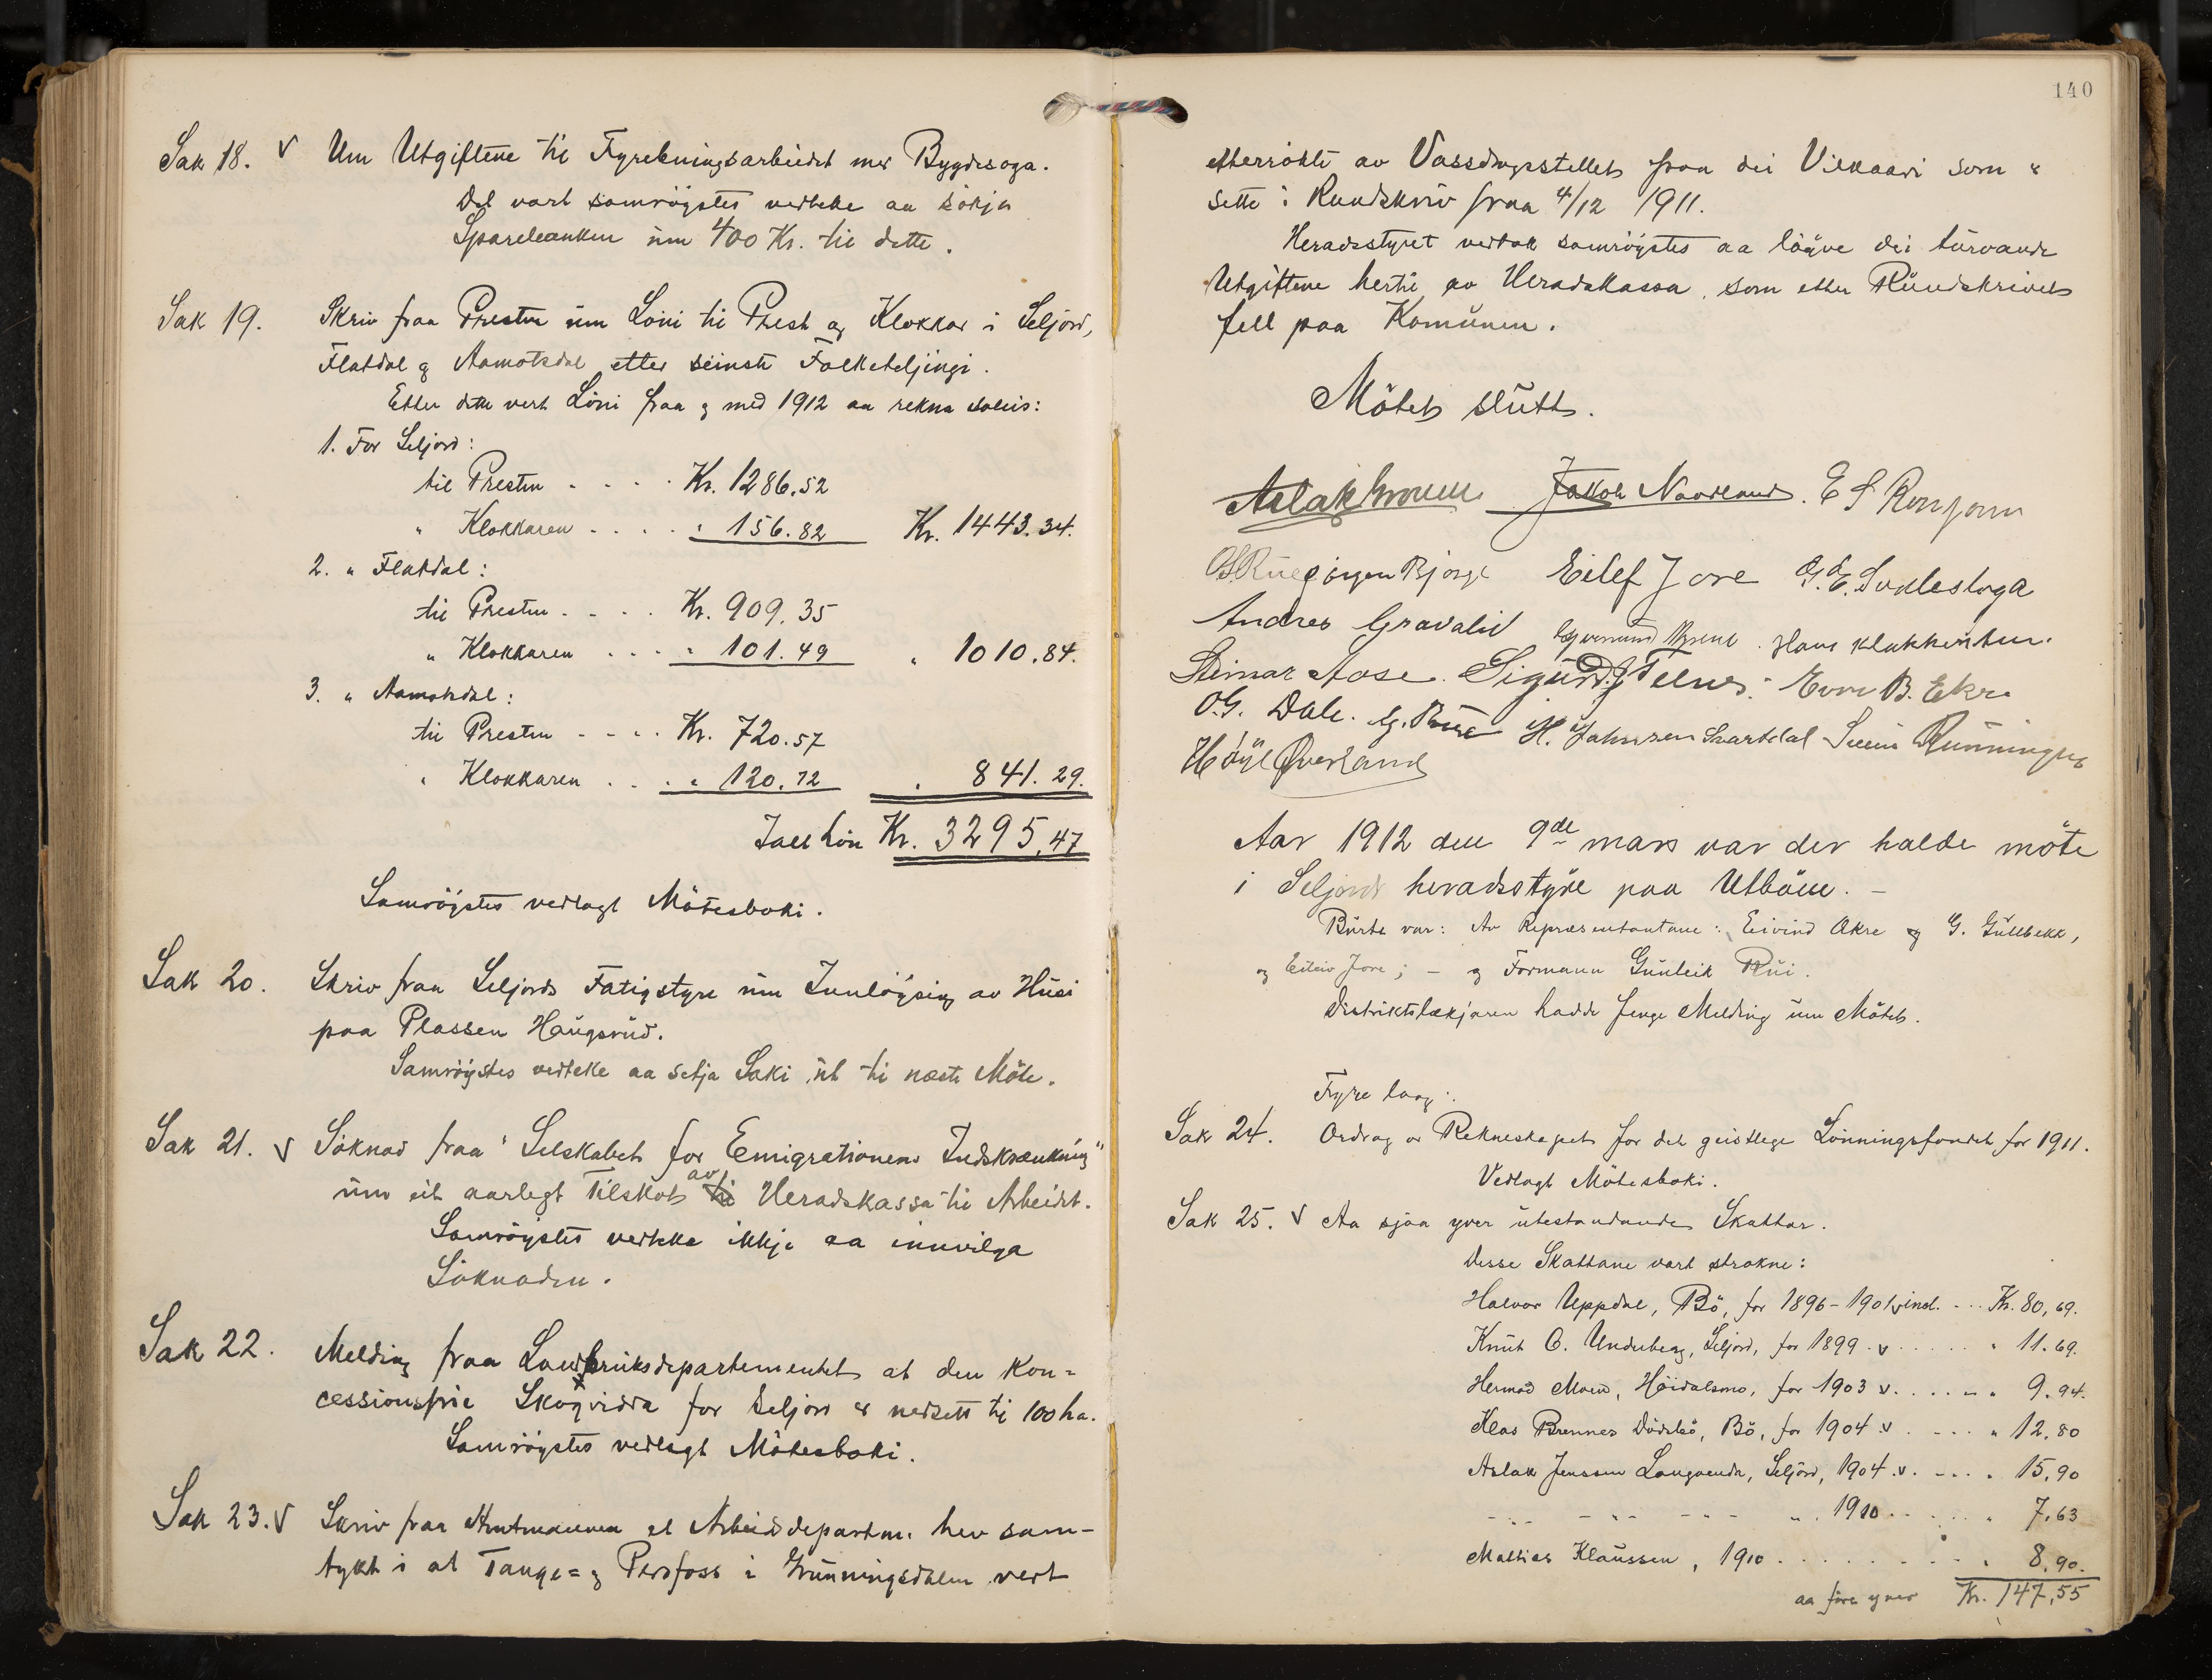 Sak 18. V Um Utgiftene til Fyrebuningsarbeidet med Bygdesoga.
Det vart samrøystes vedteke aa søkja
Sparebanken um 400 Kr. til dette.
Sak 19. Skriv fraa Presten um Løni til Prest og Klokkar i Seljord,
Flatdal og Aamotsdal etter seinste Folketeljingi.
Etter dette vert Løni fraa og med 1912 aa rekna soleis:
1. For Seljord:
til Presten . . . . Kr. 1286.52
" Klokkaren . . . . " 156.82 Kr. 1443.34.
2. " Flatdal:
til Presten . . . . Kr. 909.35
" Klokkaren . . . . " 101.49 " 1010.84.
3. " Aamotsdal:
til Presten . . . . Kr. 720.57
" Klokkaren . . . . " 120.72 " 841.29.
Kr. 3295,47
Samrøystes vedlagt Møtesboki.
Sak 20. Skriv fraa Seljords Fatigstyre um Innløysing av Husi
paa Plassen Haugsrud.
Samrøystes vedteke aa setja Saki ut til næste Møte.
Sak 21. V Søknad fraa "Selskabet for Emigrationens Indskrænkning"
um eit aarlegt Tilskot av Heradskassa til Arbeidet.
Samrøystes vedteke ikkje aa innvilga
Søknaden.
Sak 22. Melding fraa Landbruksdepartementet at den Kon=
cessionsfrie Skogvidda for Seljord er nedsett til 100 ha.
Samrøystes vedlagt Møtesboki.
Sak 23. V Skriv fraa Amtmannen at Arbeidsdepartm. hev sam-
tykt i at Tange= og Persfoss i Grunningsdalen vert
140
etterrøkte av Vassdragsstellet fraa dei Vilkaari som "
sette i Rundskriv fraa 4/12 1911.
Heradsstyret vedtok samrøystes aa løyve dei turvande
Utgiftene hertil av Heradskassa, som etter Rundskrivet
fell paa Komunen.
Møtet slutt.
Aslak Jakob Naadland. E S
Jørgen Bjørge Eilef Jore G. E.
Andres Gravalid Hans Klokkerstuen.
Steinar Aase. Sigurd Telnes. Even B. Ekre
O.G. Dale. G. Rue H. Johnsen Svartdal Svein Runningen
Høye Øverland
Aar 1912 den 9de mars var der halde møte
i Seljords heradsstyre paa Utbøen. –
Burte var: Av Representantane: Eivind Akre og G. Gullbekk,
og Eilev Jore; – og Formann Gunleik Rui.
Distriktslækjaren hadde fenge Melding um Møtet.
Fyre laag:
Sak 24. Ordrag or Rekneskapet for det geistlege Lønningsfondet for 1911.
Vedlagt Møtesboki.
Sak 25. V Aa sjaa yver utestandande Skattar.
Desse Skattane vart strokne:
Halvor Uppdal, Bø, for 1896-1901 v incl. ... Kr. 80,69.
Knut O. Underberg, Seljord, for 1899. v . . . . . " 11.69.
Hermod Moen, Høidalsmo, for 1903 v. . . . . " 9.94.
Klas Brennes Dødsbo, Bø, for 1904 v . . . . " 12,80
Aslak Jenssen Langvende, Seljord, 1904. v. . . . " 15,90
- " - - " - - " - " 1910 . . . . . " 7,63
Mattias Klaussen, 1910 . . . . . . . " 8,90.
aa føra yver Kr. 147,55